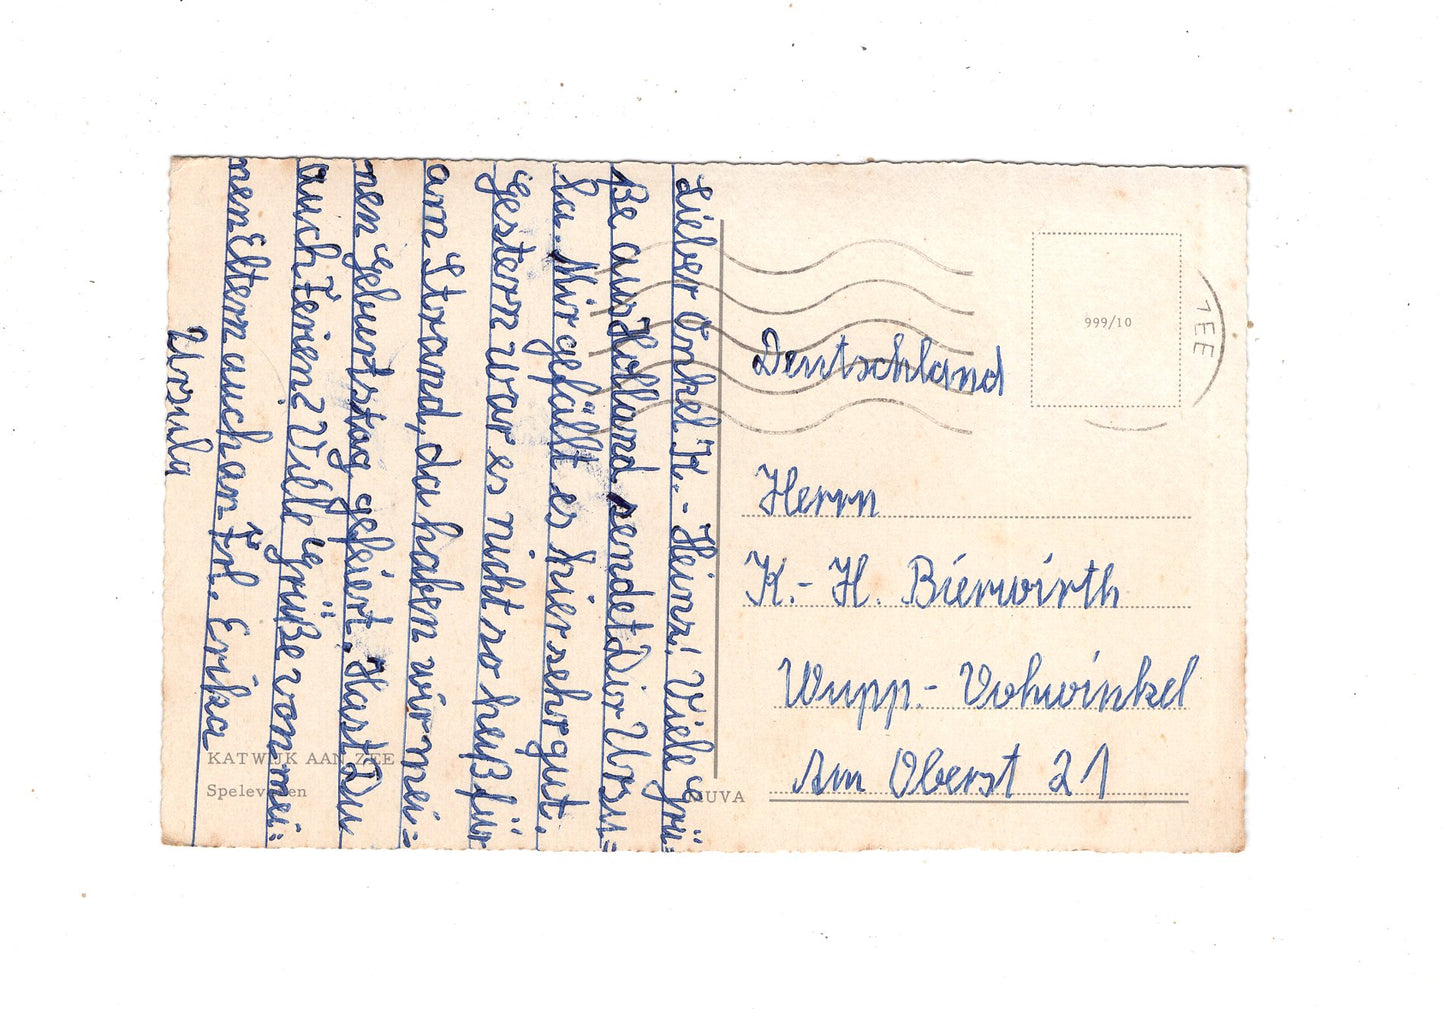 Lieber Onkel K.-Heinz! Viele Grü=
ße aus Holland sendet Dir Ursu=
la. Mir gefällt es hier sehr gut.
Gestern war es nicht so heiß für
am Strand, da haben wir mei=
nen Geburtstag gefeiert. Hast Du
auch Ferien? Viele Grüße von mei=
nen Eltern auch an Frl. Erika
Ursula
KATWIJK AAN ZEE
MUVA
999/10
ZEE
Deutschland
Herrn
K.-H. Bierwirth
Wupp.-Vohwinkel
Am Oberst 21